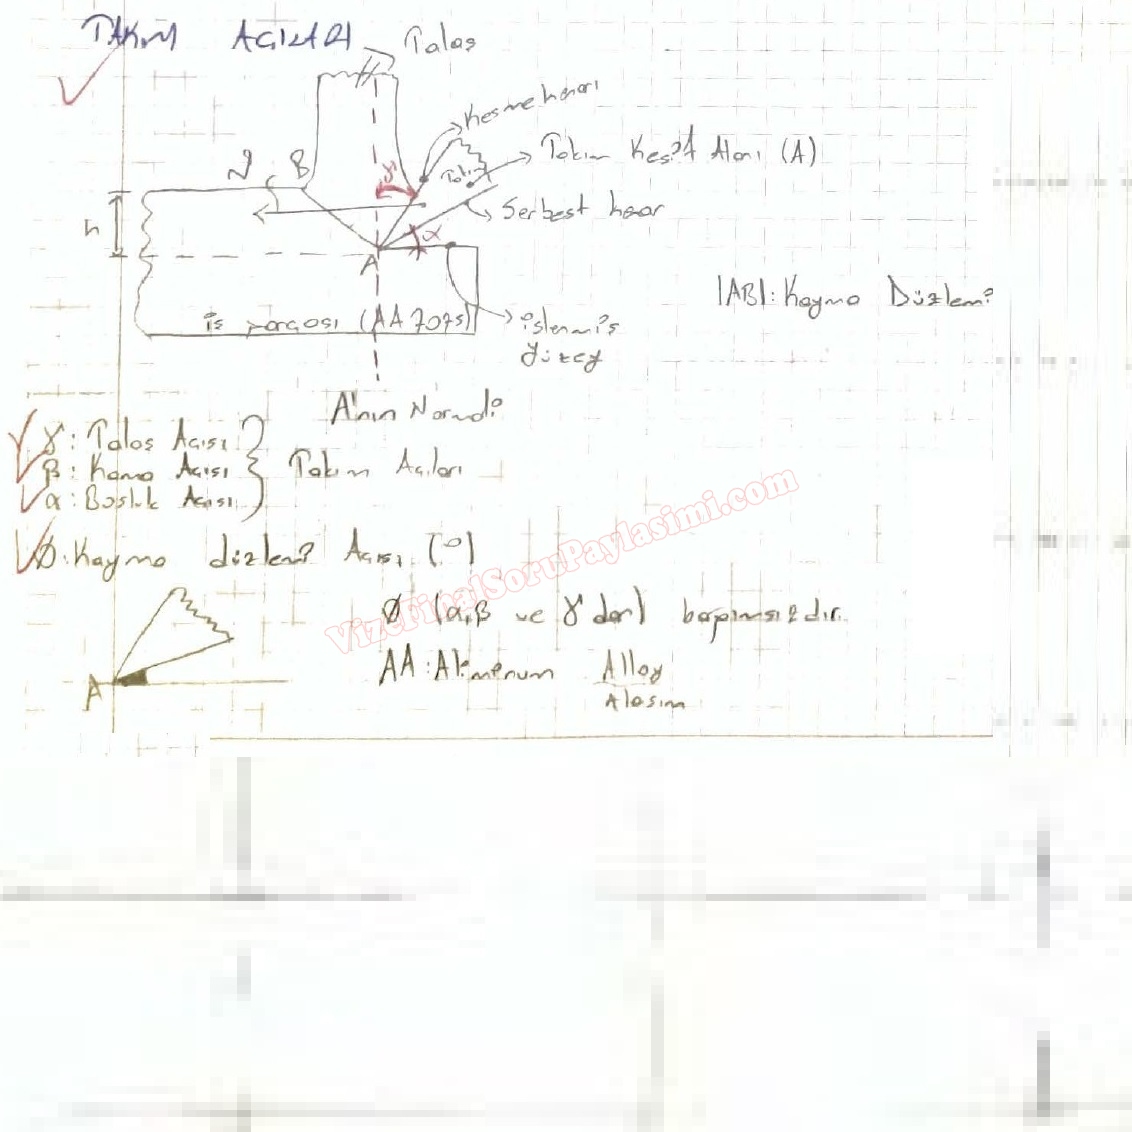 TAKIM AÇILARI
Talaş
Kesme kenarı
Takım Kesit Alanı (A)
Takım
ϑ B γ
Serbest kenar
h
α
A
|AB|: Kayma Düzlemi
iş parçası (AA 7075)
işlenmiş
yüzey
A'nın Normali
γ: Talaş Açısı
β: Kama Açısı
Takım Açıları
α: Boşluk Açısı
Ø: Kayma düzlemi Açısı (°)
Ø (α, β ve γ'dan) bağımsızdır.
AA: Alimenum Alloy
Alaşım
A
VizeFinalSoruPaylasimi.com